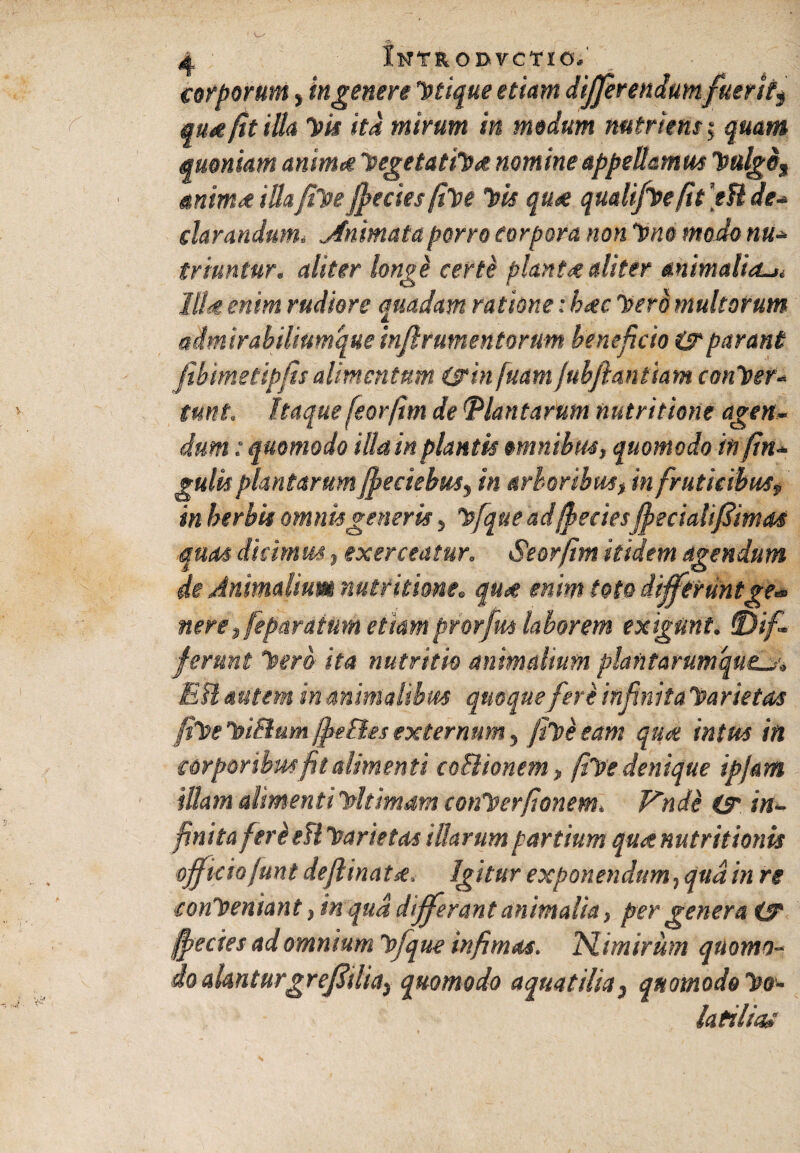 4 INTRODVCTIO.
corporum, in genere vtique etiam differendum fuerit,
quæ ſit illa vis ita mirum in modum nutriens; quam
quoniam animæ vegetatiuæ nomine appellamus vulgò,
animæ illa ſiue ſpecies ſiue vis quæ qualiſue ſit eſt de-
clarandum. Animata porro corpora non vno modo nu-
triuntur. aliter longè certè plantæ aliter animalia.
Illæ enim rudiore quadam ratione: hæc verò multorum
admirabiliumque inſtrumentorum beneficio & parant
ſibimetipſis alimentum & in ſuam ſubſtantiam conuer-
tunt. Itaque ſeorſim de Plantarum nutritione agen-
dum: quomodo illa in plantis omnibus, quomodo in ſin-
gulis plantarum ſpeciebus, in arboribus, in fruticibus,
in herbis omnis generis, vſque ad ſpecies ſpecialiſſimas
quas dicimus, exerceatur. Seorſim itidem agendum
de Animalium nutritione. quæ enim toto differunt ge-
nere, ſeparatum etiam prorſus laborem exigunt. Dif-
ferunt verò ita nutritio animalium plantarumque.
Eſt autem in animalibus quoque ferè infinita varietas
ſiue victum ſpectes externum, ſiue eam quæ intus in
corporibus fit alimenti coctionem, ſiue denique ipſam
illam alimenti vltimam conuerſionem. Vndè & in-
finita ferè eſt varietas illarum partium quæ nutritionis
officio ſunt deſtinatæ. Igitur exponendum, quâ in re
conueniant, in quâ differant animalia, per genera &
ſpecies ad omnium vſque infimas. Nimirùm quomo-
do alantur greſſilia, quomodo aquatilia, quomodo vo-
latilia